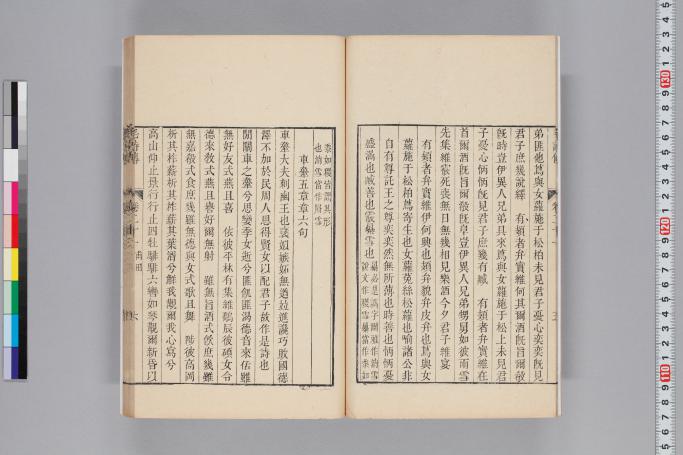 弟匪他蔦與女蘿施于松柏未見君子憂心奕奕既見
君子庶幾說繹　有頍者弁實維何其爾酒既旨爾殽
既時豈伊異人兄弟具來蔦與女蘿施于松上未見君
子憂心怲怲既見君子庶幾有臧　有頍者弁實維在
首爾酒既旨爾殽既阜豈伊異人兄弟甥舅如彼雨雪
先集維霰死喪無日無幾相見樂酒今夕君子維宴
有頍者弁實維伊何興也頍弁貌弁皮弁也蔦與女
蘿施于松柏蔦寄生也女蘿菟絲松蘿也喻諸公非
自有尊託王之尊奕奕然無所薄也時善也怲怲憂
盛滿也臧善也霰暴雪也
暴必是譌字爾雅作消雪
說文作稷雪暴當作黍如
黍如稷皆謂其形
也消雪當作屑雪
車舝五章章六句
車舝大夫刺幽王也襃姒嫉妬無道竝進讒巧敗國德
澤不加於民周人思得賢女以配君子故作是詩也
閒關車之舝兮思孌季女逝兮匪飢匪渴德音來佸雖
無好友式燕且喜　依彼平林有集維鷮辰彼碩女令
德來敎式燕且譽好爾無射　雖無旨酒式飮庶幾雖
無嘉殽式食庶幾雖無德與女式歌且舞　陟彼高岡
析其柞薪析其柞薪其葉湑兮鮮我覯爾我心寫兮
高山仰止景行行止四牡騑騑六轡如琴覯爾新昏以
甫田
六